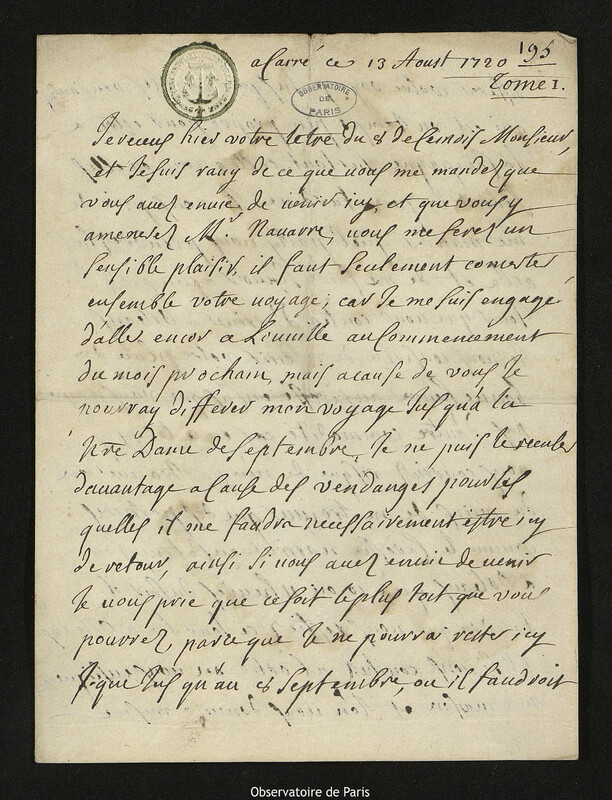 a Carré ce 13 Aoust 1720
195
Tome 1.
OBSERVATOIRE
DE
PARIS
Je receus hier votre letre du 8 de ce mois Monsieur,
et Je suis ravy de ce que vous me mandez que
vous avez envie de venir icy, et que vous y
amenerez Mr. Navarre, vous me ferez un
sensible plaisir, il faut seulement concerter
ensemble votre voyage, car Je me suis engagé
d'aller encor a Louville au commencement
du mois prochain, mais a cause de vous Je
pourray differer mon voyage Jusqu'a la
Ntre Dame de septembre, Je ne puis le reculer
davantage a cause des vendanges pour les
quelles il me faudra necessairement estre icy
de retour, ainsi si vous avez envie de venir
Je vous prie que ce soit le plus tost que vous
pourrez, parce que Je ne pourrai rester icy
que Jusqu'au 8 septembre, ou il faudroit
Observatoire de Paris